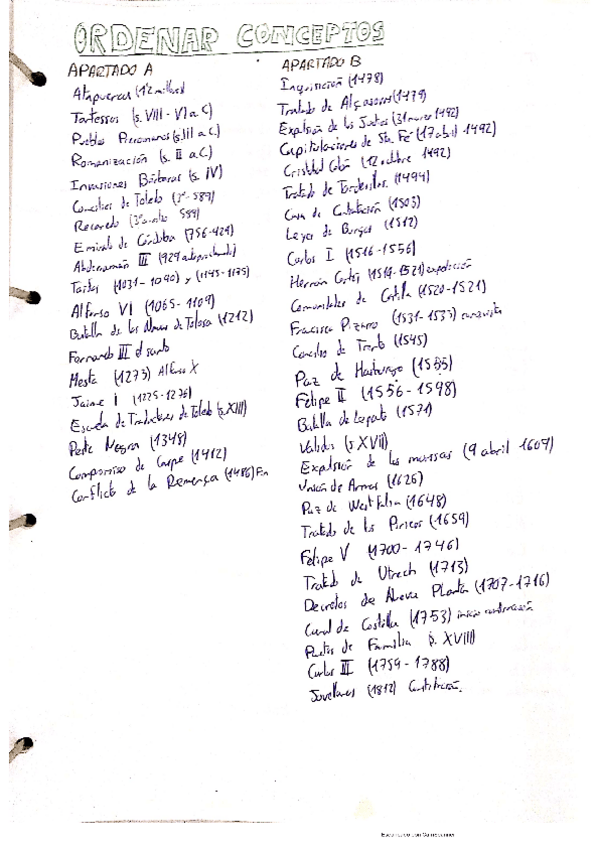 ORDENAR CONCEPTOS
APARTADO A
Atapuerca (1'2 millones)
Tartessos (s. VIII - VI a.C)
Pueblos Prerromanos (s. III a.C)
Romanización (s. II a.C)
Invasiones Bárbaras (s. IV)
Concilios de Toledo (3º - 589)
Recaredo (3º concilio 589)
Emirato de Córdoba (756-929)
Abderramán III (929 autoproclamado)
Taifas (1031 - 1090) y (1145-1175)
Alfonso VI (1065-1109)
Batalla de las Navas de Tolosa (1212)
Fernando III el santo
Mesta (1273) Alfonso X
Jaime I (1225-1276)
Escuela de Traductores de Toledo (s. XIII)
Peste Negra (1348)
Compromiso de Caspe (1412)
Conflicto de la Remença (1486) Fin
APARTADO B
Inquisición (1478)
Tratado de Alcaçovas (1479)
Expulsión de los Judíos (31 marzo 1492)
Capitulaciones de Sta Fe (17 abril 1492)
Cristóbal Colón (12 octubre 1492)
Tratado de Tordesillas (1494)
Casa de Contratación (1503)
Leyes de Burgos (1512)
Carlos I (1516-1556)
Hernán Cortés (1519-1521) expedición
Comunidades de Castilla (1520-1521)
Francisco Pizarro (1531-1533) conquista
Concilio de Trento (1545)
Paz de Hasburgo (1555)
Felipe II (1556-1598)
Batalla de Lepanto (1571)
Validos (s. XVII)
Expulsión de los moriscos (9 abril 1609)
Unión de Armas (1626)
Paz de Westfalia (1648)
Tratado de los Pirineos (1659)
Felipe V (1700-1746)
Tratado de Utrech (1713)
Decretos de Nueva Planta (1707-1716)
Canal de Castilla (1753) inicio
Pactos de Familia (s. XVIII)
Carlos III (1759-1788)
Jovellanos (1812) Constitución.